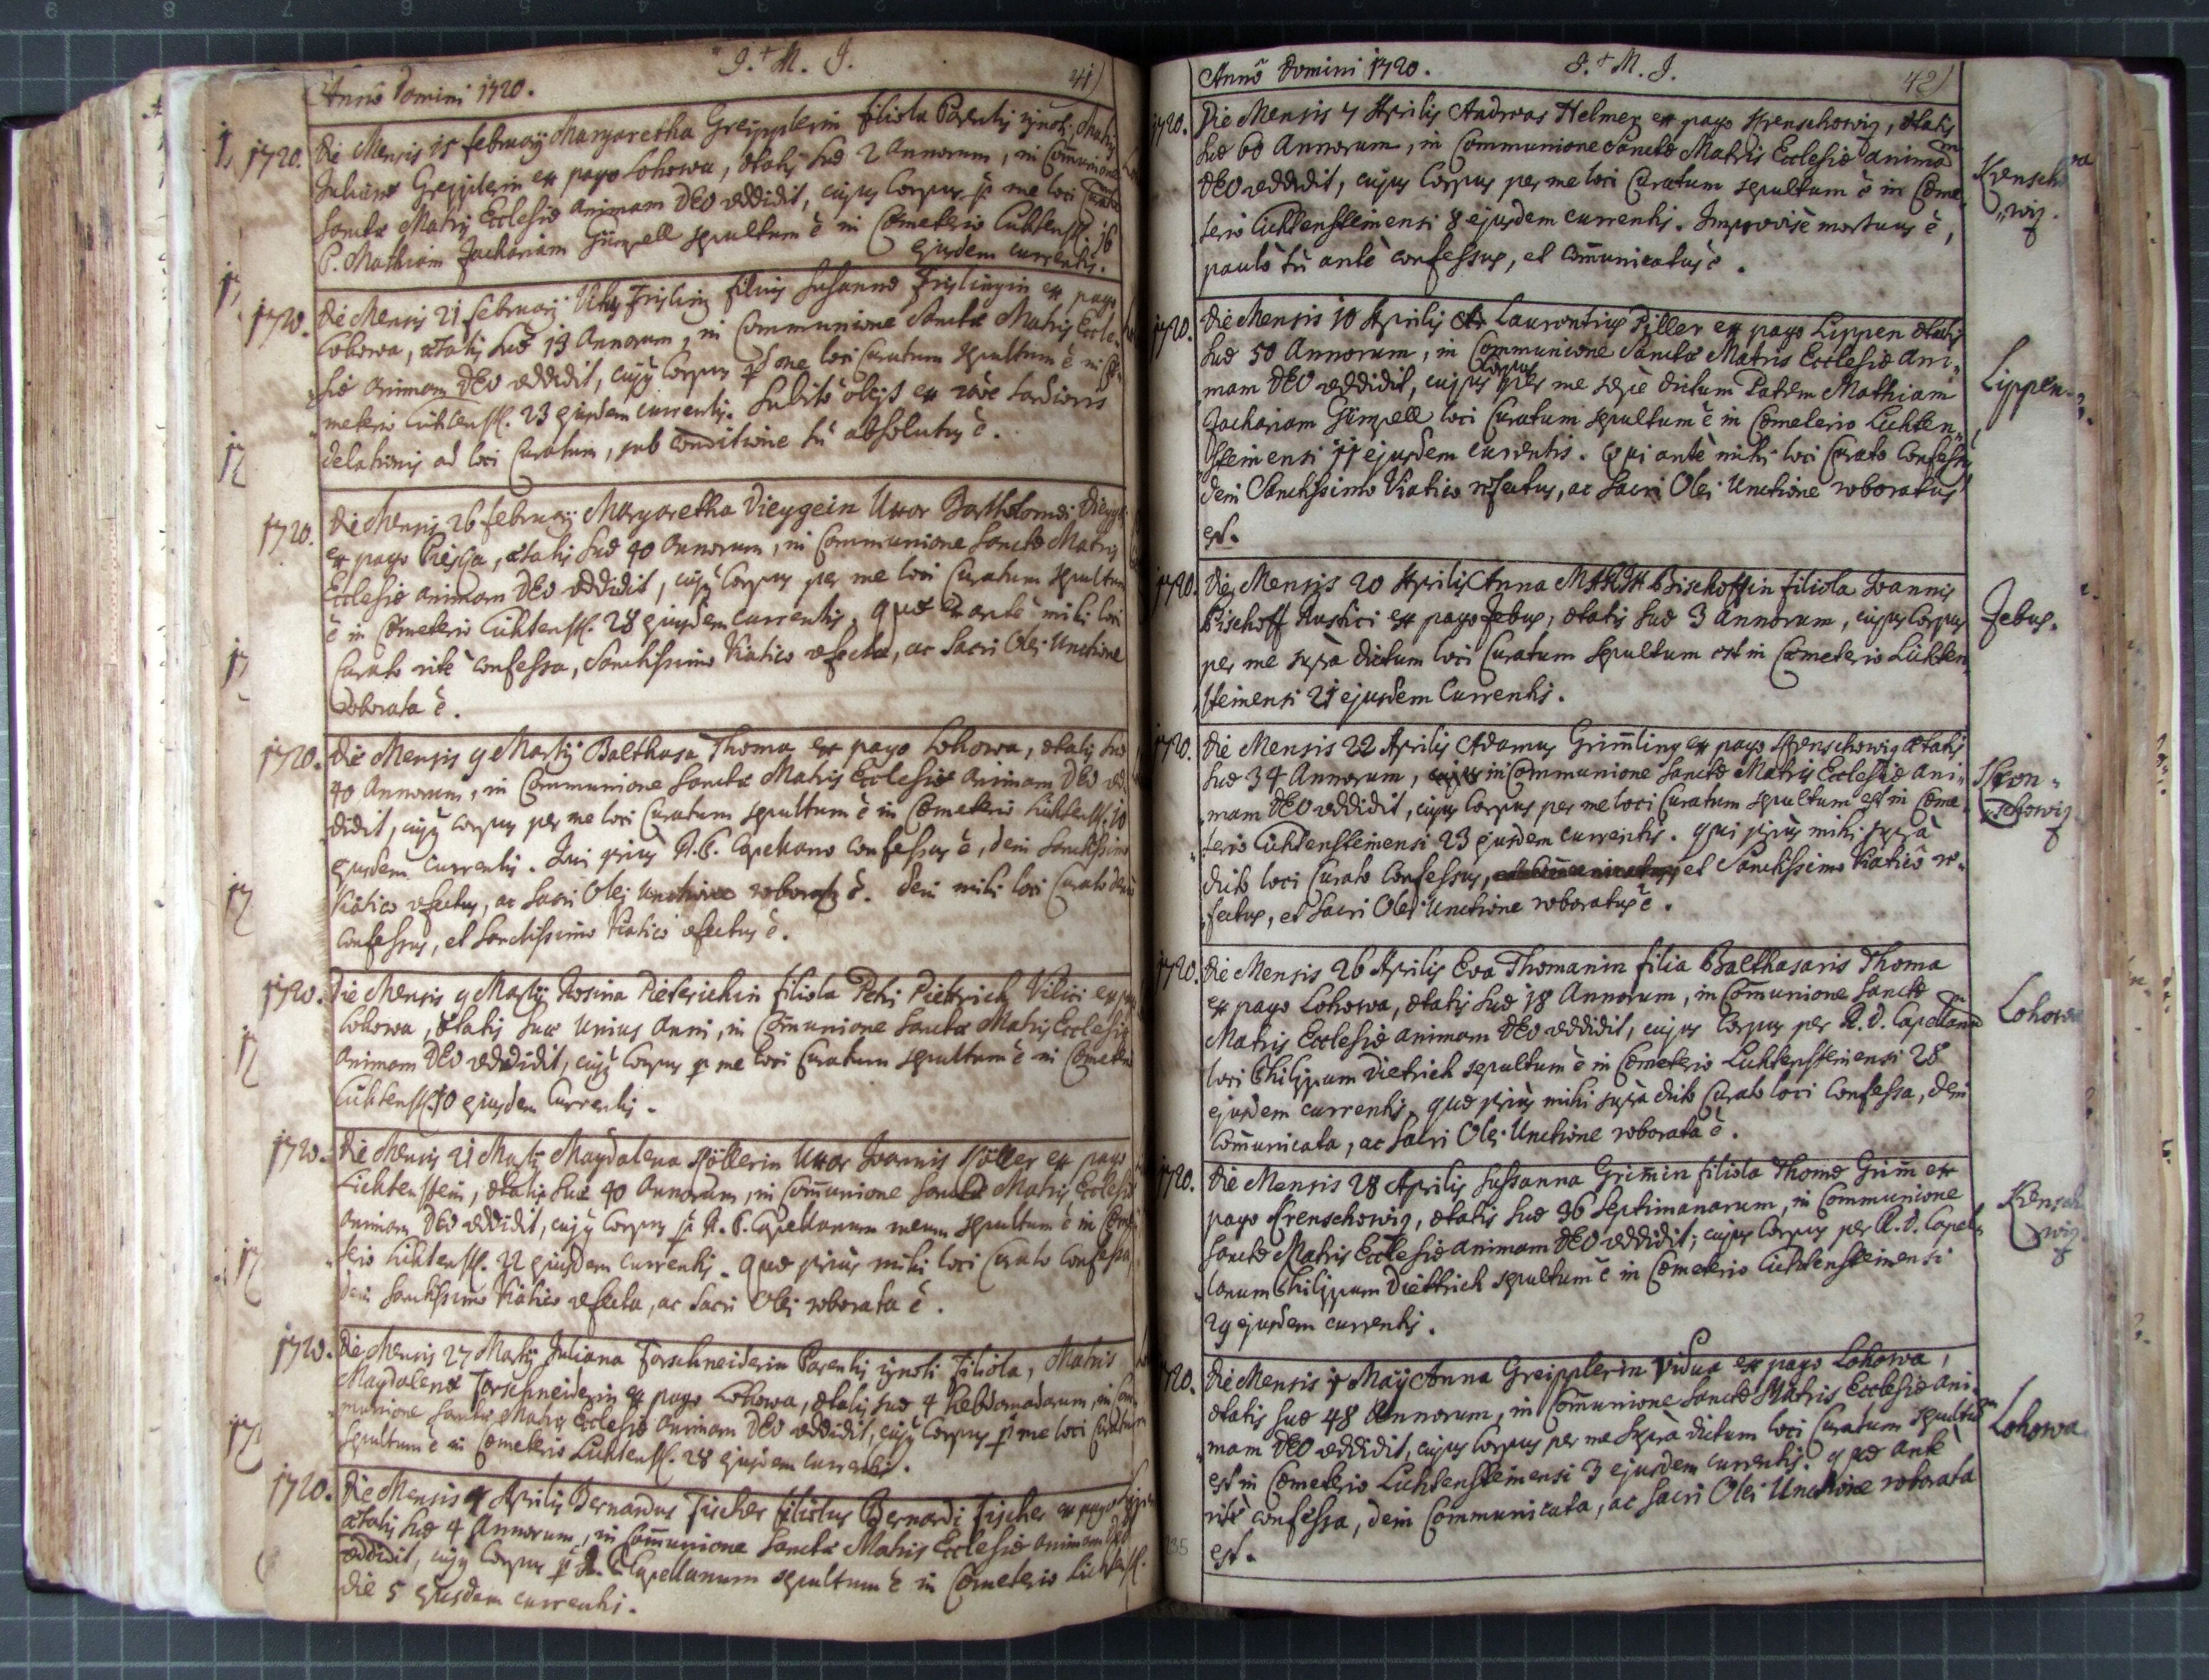 J. + M. J.
41)
Anno Domini 1720.
1720. Die Mensis 15 february Margaretha Greipplerin filiola Parentis ignoti, Matris
Julianæ Greipplerin ex pago Lohowa, ætatis suæ 2 Annorum, in Communione
Sanctæ Matris Ecclesiæ animam DEO reddidit, cujus Corpus p me loci Curatum
P. Mathiam Zachariam Gümpell sepultum ē in Cœmeterio Lichtenst. 16
ejusdem currentis.
1720. Die Mensis 21 february Vitus Frisling filius Susannæ Frislingin ex pago
Lohowa, ætatis suæ 13 Annorum, in Communione Sanctæ Matris Eccle„
„siæ animam DEO reddidit, cujus Corpus p me loci Curatum sepultum ē in Cœ„
„meterio Lichtenst. 23 ejusdem currentis. Subito obijt ex
delationis ad loci Curatum, sub conditione tn̄ absolutus ē.
1720. Die Mensis 26 february Margaretha Vieygein Uxor Bartholomæi
ex pago ætatis suæ 40 Annorum, in Communione Sanctæ Matris
Ecclesiæ animam DEO reddidit, cujus Corpus per me loci Curatum sepultum
ē in Cœmeterio Lichtenst. 28 ejusdem currentis, quæ ante mihi loci
Curato rite confessa, Sanctissimo Viatico refecta, ac Sacri Olei Unctione
roborata ē.
1720. Die Mensis 9 Martij Balthasar Thoma ex pago Lohowa, ætatis suæ
40 Annorum, in Communione Sanctæ Matris Ecclesiæ animam DEO red„
didit, cujus Corpus per me loci Curatum sepultum ē in Cœmeterio Lichtenst. 10
ejusdem currentis. Qui prius R. P. Capellano confessus ē, dein Sanctissimo
Viatico refectus, ac Sacri Olei Unctione roboratus ē. Dein mihi loci Curato
confessus, et Sanctissimo Viatico refectus ē.
1720. Die Mensis 9 Martij Rosina Pieterichin filiola Petri Piettrich Villici ex
Lohowa, ætatis suæ unius Anni, in Communione Sanctæ Matris Ecclesiæ
animam DEO reddidit, cujus Corpus p me loci Curatum sepultum ē in Cœmeterio
Lichtenst. 10 ejusdem Currentis.
1720. Die Mensis 21 Martij Magdalena Köllerin Uxor Joannis Köller ex pago
Lichtenstein, ætatis suæ 40 Annorum, in Communione Sanctæ Matris Ecclesiæ
animam DEO reddidit, cujus Corpus p R. P. Capellanum meum sepultum ē in Cœme„
„terio Lichtenst. 22 ejusdem currentis. quæ prius mihi loci Curato confessa,
dein Sanctissimo Viatico refecta, ac Sacri Olei roborata ē.
1720. Die Mensis 27 Martij Juliana Forschneiderin Parentis ignoti Filiola, Matris
Magdalenæ Forschneiderin ex pago Lohowa, ætatis suæ 4 hebdomadarum, in Com„
„munione Sanctæ Matris Ecclesiæ animam DEO reddidit, cujus Corpus p me loci Curatum
sepultum ē in Cœmeterio Lichtenst. 28 ejusdem currentis.
1720. Die Mensis 4 Aprilis Bernardus Fischer filiolus Bernardi Fischer ex pago
ætatis suæ 4 Annorum, in Communione Sanctæ Matris Ecclesiæ animam DEO
reddidit, cujus Corpus p R. P. Capellanum sepultum ē in Cœmeterio Lichtenst.
die 5 ejusdem currentis.
J. + M. J.
42)
Anno Domini 1720.
1720. Die Mensis 7 Aprilis Andreas Helmer ex pago Krenschowiz, ætatis
suæ 60 Annorum, in Communione Sanctæ Matris Ecclesiæ animam
DEO reddidit, cujus Corpus per me loci Curatum sepultum ē in Cœme„
„terio Lichtensteinensi 8 ejusdem currentis. Improvise mortuus ē,
paulo tn̄ ante confessus, et communicatus ē.
Krenscho
„wiz.
1720. Die Mensis 10 Aprilis Laurentius Piller ex pago Lippen ætatis
suæ 50 Annorum, in Communione Sanctæ Matris Ecclesiæ ani„
„mam DEO reddidit, cujus Corpus per me sæpe dictum Patrem Mathiam
Zachariam Gümpell loci Curatum sepultum ē in Cœmeterio Lichten„
„steinensi 11 ejusdem currentis. Qui ante mihi loci Curato confessus,
dein Sanctissimo Viatico refectus, ac Sacri Olei Unctione roboratus
est.
Lippen.
1720. Die Mensis 20 Aprilis Anna MARIA Bischoffin filiola Joannis
Bischoff Rustici ex pago Jebus, ætatis suæ 3 Annorum, cujus Corpus
per me supra dictum loci Curatum sepultum est in Cœmeterio Lichten„
„steinensi 21 ejusdem Currentis.
Jebus.
1720. Die Mensis 22 Aprilis Adamus Grimling ex pago Krenschowiz ætatis
suæ 34 Annorum, in Communione Sanctæ Matris Ecclesiæ ani„
„mam DEO reddidit, cujus Corpus per me loci Curatum sepultum est in Cœme„
„terio Lichtensteinensi 23 ejusdem currentis. qui prius mihi supra
dicto loci Curato Confessus, et Sanctissimo Viatico re„
„fectus, et Sacri Olei Unctione roboratus ē.
Kren„
„schowiz
1720. Die Mensis 26 Aprilis Eva Thomanin filia Balthasaris Thoma
ex pago Lohowa, ætatis suæ 18 Annorum, in Communione Sanctæ
Matris Ecclesiæ animam DEO reddidit, cujus Corpus per R. D. Capellanum
loci Philippum Dietrich sepultum ē in Cœmeterio Lichtensteinensi 28
ejusdem currentis, quæ prius mihi supra dicto Curato loci Confessa, dein
Communicata, ac Sacri Olei Unctione roborata ē.
Lohowa
1720. Die Mensis 28 Aprilis Sussanna Grimin filiola Thomæ Grim ex
pago Krenschowiz, ætatis suæ 36 Septimanarum, in Communione
Sanctæ Matris Ecclesiæ animam DEO reddidit; cujus Corpus per R. D. Capel„
„lanum Philippum Diettrich sepultum ē in Cœmeterio Lichtensteinensi
29 ejusdem currentis.
Krensch
wiz
1720. Die Mensis 1 Maij Anna Greipplerin Vidua ex pago Lohowa,
ætatis suæ 48 Annorum, in Communione Sanctæ Matris Ecclesiæ ani„
„mam DEO reddidit, cujus Corpus per me supra dictum loci Curatum sepultum
est in Cœmeterio Lichtensteinensi 3 ejusdem currentis. quæ ante
rite confessa, dein Communicata, ac Sacri Olei Unctione roborata
est.
Lohowa